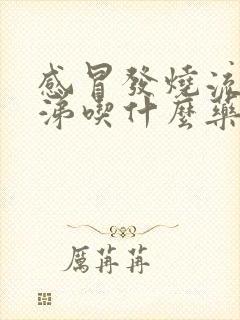 感冒發燒流
涕喫什麼藥
厲苒苒